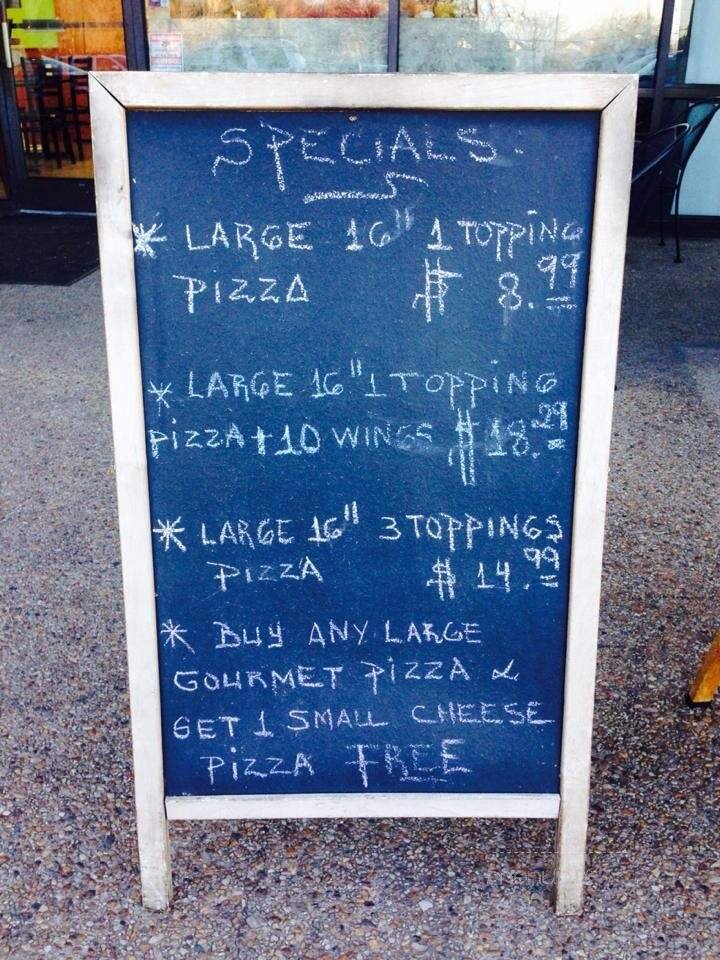 SPECIALS
* LARGE 16" 1 TOPPING
PIZZA $ 8.99
* LARGE 16" 1 TOPPING
PIZZA + 10 WINGS $ 18.29
* LARGE 16" 3 TOPPINGS
PIZZA $ 14.99
* BUY ANY LARGE
GOURMET PIZZA &
GET 1 SMALL CHEESE
PIZZA FREE